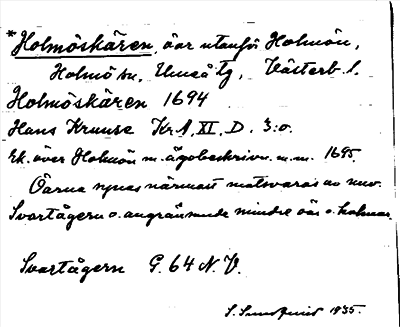 *Holmöskären, öar utanför Holmön,
Holmö sn, Umeå tg, Västerb. l.
Holmöskären 1694
Hans Kruuse Kr. A. XI. D. 3:o.
Ek. över Holmön m. ägobeskrivn. m.m. 1695.
Öarna synas närmast motsvaras av nuv.
Svartågern o. angränsande mindre öar o. holmar.
Svartågern G. 64 N.V.
1935.